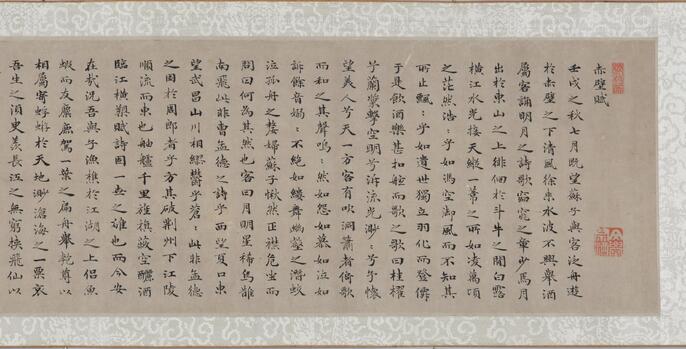 赤壁賦
壬戌之秋七月既望蘇子與客泛舟遊
於赤壁之下清風徐來水波不興舉酒
屬客誦明月之詩歌窈窕之章少焉月
出於東山之上徘徊於斗牛之間白露
橫江水光接天縱一葦之所如凌萬頃
之茫然浩〻乎如馮空御風而不知其
所止飄〻乎如遺世獨立羽化而登僊
於是飲酒樂甚扣舷而歌之歌曰桂櫂
兮蘭槳擊空明兮泝流光渺〻兮予懷
望美人兮天一方客有吹洞簫者倚歌
而和之其聲嗚〻然如怨如慕如泣如
訴餘音嫋〻不絕如縷舞幽壑之潛蛟
泣孤舟之嫠婦蘇子愀然正襟危坐而
問曰何為其然也客曰月明星稀烏鵲
南飛此非曹孟德之詩乎西望夏口東
望武昌山川相繆鬱乎蒼〻此非孟德
之困於周郎者乎方其破荊州下江陵
順流而東也舳艫千里旌旗蔽空釃酒
臨江橫槊賦詩固一世之雄也而今安
在哉況吾與子漁樵於江湖之上侶魚
蝦而友麋鹿駕一葉之扁舟舉匏尊以
相屬寄蜉蝣於天地渺滄海之一粟哀
吾生之須臾羨長江之無窮挾飛仙以